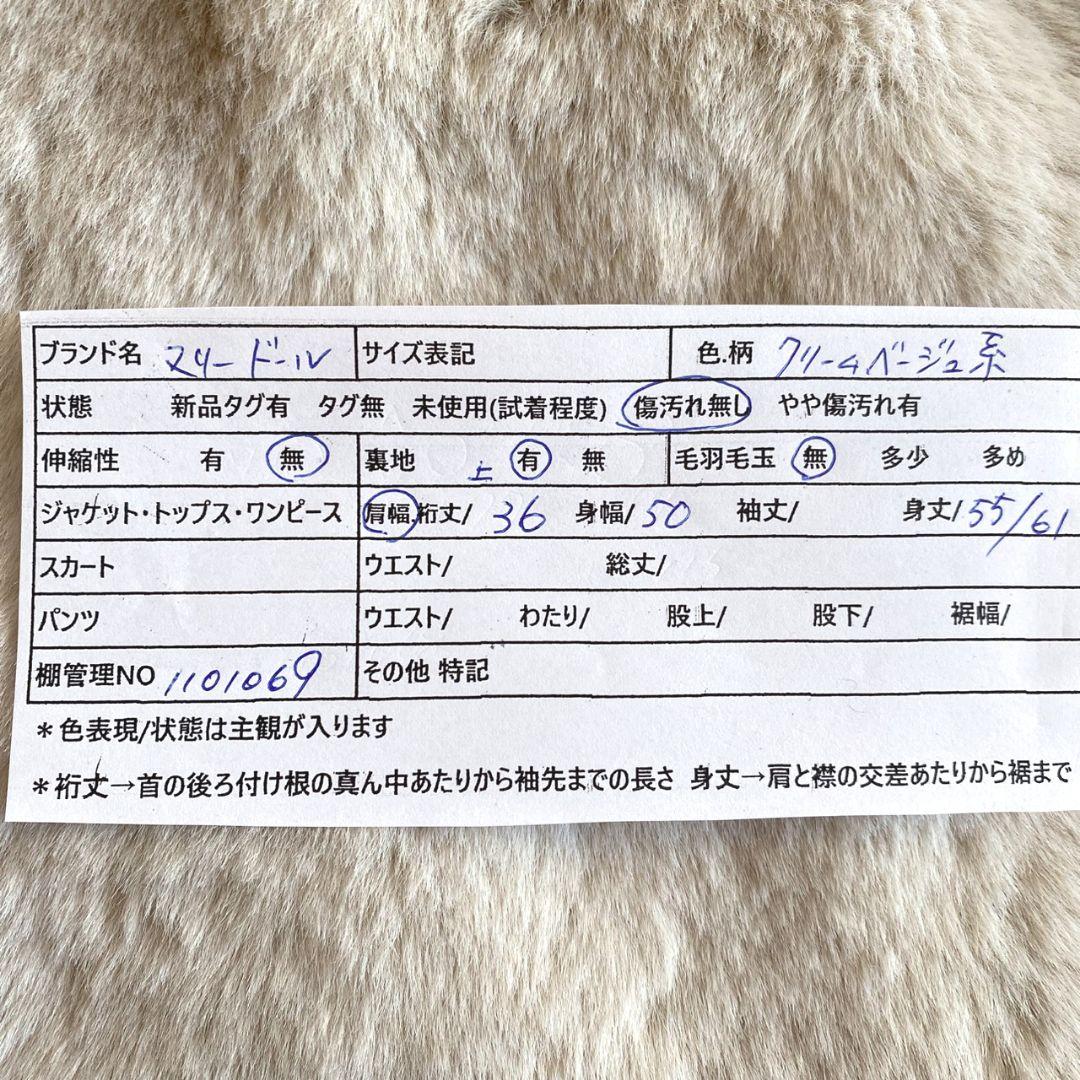 ブランド名 マリードール サイズ表記 色.柄 クリームベージュ系
状態 新品タグ有 タグ無 未使用(試着程度) 傷汚れ無し やや傷汚れ有
伸縮性 有 無 裏地 上 有 無 毛羽毛玉 無 多少 多め
ジャケット・トップス・ワンピース 肩幅.裄丈/ 36 身幅/ 50 袖丈/ 身丈/ 55/61
スカート ウエスト/ 総丈/
パンツ ウエスト/ わたり/ 股上/ 股下/ 裾幅/
棚管理NO 1101069 その他 特記
＊色表現/状態は主観が入ります
＊裄丈→首の後ろ付け根の真ん中あたりから袖先までの長さ 身丈→肩と襟の交差あたりから裾まで